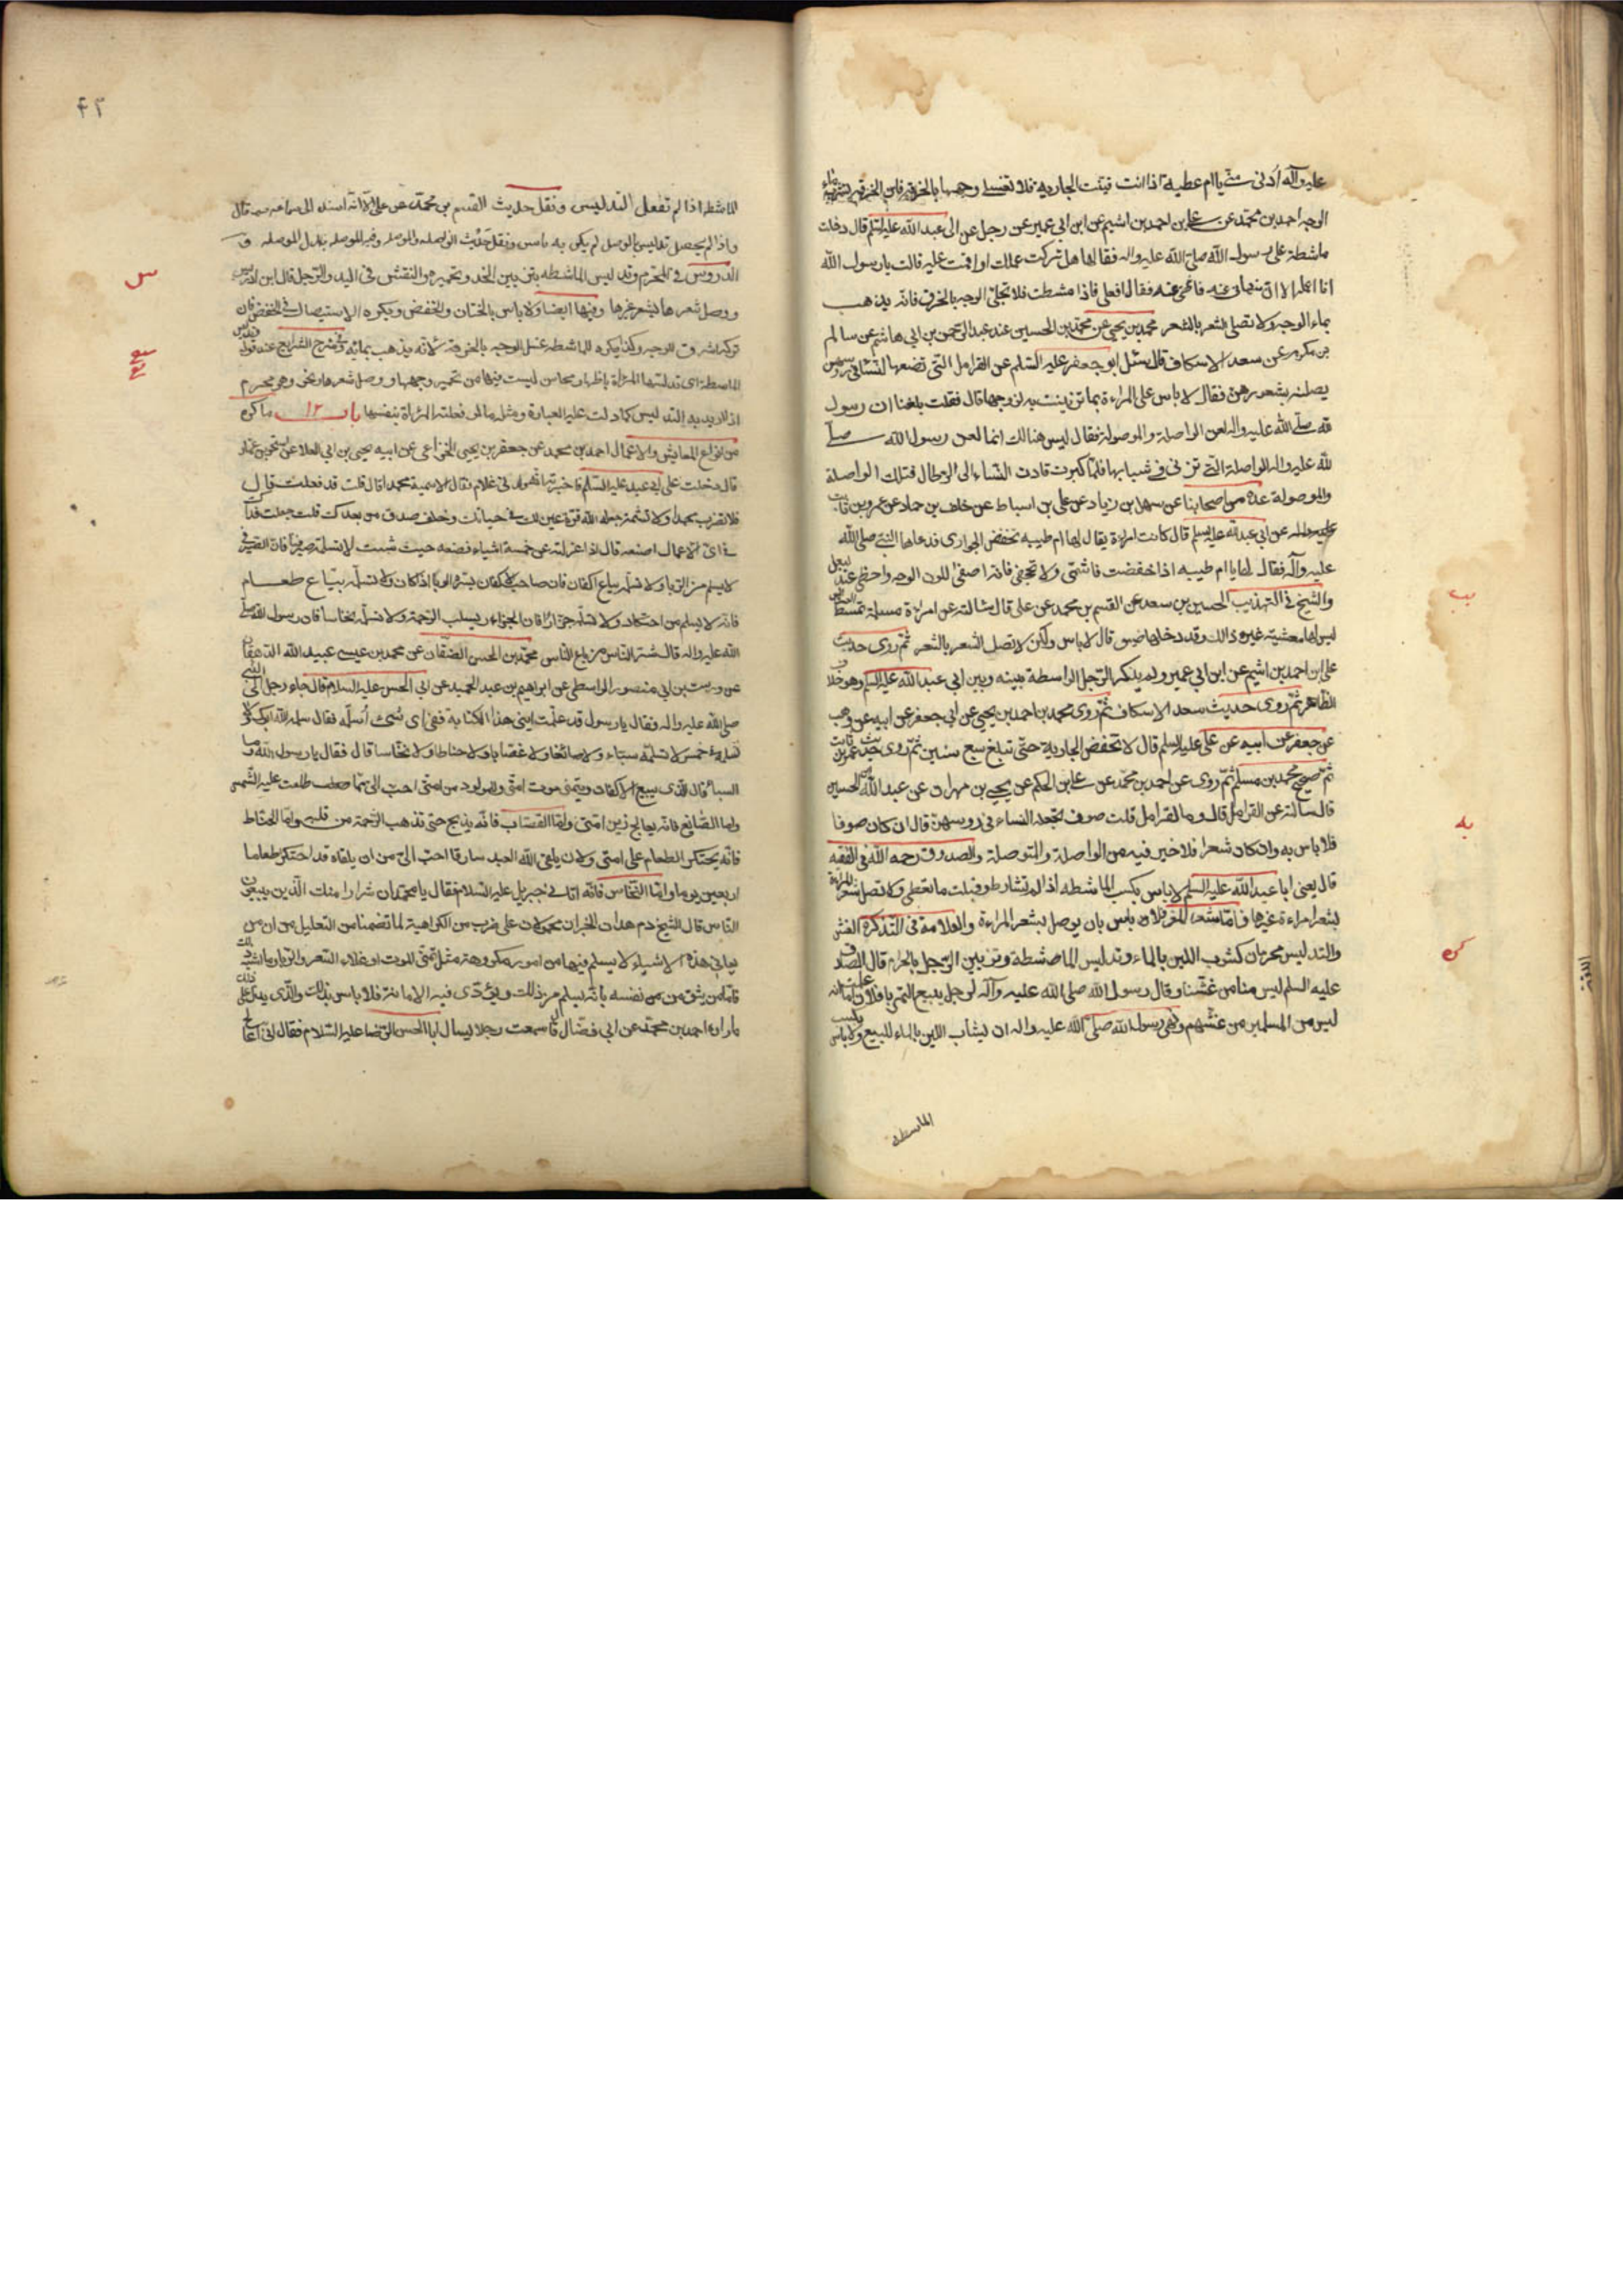 عليه وآله أدنى منّي يا ام عطيه اذا انت قينت الجاريه فلا تغسلي وجهها بالخرقه فان الخرقه تشرب ماء
الوجه احمد بن محمد عن علي بن احمد بن اشيم عن ابن ابي عمير عن رجل عن ابى عبد الله عليه السلم قال دخلت
ماشطة على رسول الله صلى الله عليه واله فقال لها هل تركت عملك او اقمت عليه فقالت يا رسول الله
انا اعمله الا ان تنهاني عنه فانتهي عنه فقال افعلي فاذا مشطت فلا تجلي الوجه بالخرق فانه يذهب
بماء الوجه ولا تصلي الشعر بالشعر محمد بن يحيى عن محمد بن الحسين عن عبد الرحمن بن ابي هاشم عن سالم
بن مكرم عن سعد الاسكاف قال سئل ابو جعفر عليه السلم عن القرامل التي تضعها النساء في روسهن
يصلنه بشعورهن فقال لا باس على المراءة بما تزينت به لزوجها قال فقلت بلغنا ان رسول
الله صلى الله عليه واله لعن الواصلة والموصولة فقال ليس هنالك انما لعن رسول الله صلى
الله عليه واله الواصلة التي تزني في شبابها فلما كبرت قادت النساء الى الرجال فتلك الواصلة
والموصولة عدة من اصحابنا عن سهل بن زياد عن علي بن اسباط عن خلف بن حماد عن عمرو بن ثابت
عن ابي عبد الله عليه السلم قال كانت امراءة يقال لها ام طيبه تخفض الجواري فدعاها النبي صلى الله
عليه وآله فقال لها يا ام طيبه اذا خفضت فاشمي ولا تجحفي فانه اصفى للون الوجه واحظى عند البعل
والشيخ في التهذيب الحسين بن سعيد عن القسم بن محمد عن علي قال سالته عن امراءة مسلمة تمشط العرايس
ليس لها معيشة غير ذلك وقد دخلها ضيق قال لا باس ولكن لا تصل الشعر بالشعر ثم روى حديث
علي بن احمد بن اشيم عن ابن ابي عمير ولم يذكر الرجل الواسطة بينه وبين ابي عبد الله عليه السلم وهو خلاف
الظاهر ثم روى حديث سعد الاسكاف ثم روى محمد بن احمد بن يحيى عن ابي جعفر عن ابيه عن وهب
عن جعفر عن ابيه عن علي عليه السلم قال لا تخفض الجارية حتى تبلغ سبع سنين ثم روى حديث عمرو بن ثابت
ثم صحيح محمد بن مسلم ثم روى عن احمد بن محمد عن علي بن الحكم عن يحيى بن مهران عن عبد الله بن الحسين
قال سالته عن القرامل قال وما القرامل قلت صوف تجعله النساء في روسهن قال ان كان صوفا
فلا باس به وان كان شعرا فلا خير فيه من الواصلة والمتوصلة والصدوق رحمه الله في الفقه
قال يعني ابا عبد الله عليه السلم لا باس بكسب الماشطه اذا لم تشارط وقبلت ما تعطى ولا تصل شعر المراءة
بشعر امراءة غيرها فاما شعر المعز فلا باس بان يوصل بشعر المراءة والعلامة في التذكرة الغش
والتدليس محرمان كشوب اللبن بالماء وتدليس الماشطة وتزيين الرجل بالحرام قال الصادق
عليه السلم ليس منا من غشنا وقال رسول الله صلى الله عليه وآله لرجل يبيع التمر يا فلان اما علمت انه
ليس من المسلمين من غشهم ونهى رسول الله صلى الله عليه واله ان يشاب اللبن بالماء للبيع ولا باس بكسب
الماشطه
يب
يه
كره
٤٢
الماشطه اذا لم تفعل التدليس ونقل حديث القسم بن محمد عن علي الا انه اسنده الى قال
واذا لم يحصل تدليس بالوصل لم يكن به باس ونقل حديث الواصله والموصله
الدروس في المحرم وتدليس الماشطه بتزيين الخد وتحميره والنقش في اليد والرجل قال ابن ادريس
ووصل شعرها بشعر غيرها وفيها ايضا ولا باس بالختان والخفض ويكره الاستيصال في الخفض
وكذا يكره للماشطه غسل الوجه بالخرقة لانه يذهب بمائه وفي شرح الشرايع عند قوله وتدليس
الماشطة اي تدليسها المراءة باظهار محاسن ليست فيها من تحمير وجهها ووصل شعرها ونحو وهو محرم
اذ لا يريد به التدليس كما دلت عليه العبارة ومثله ما لو فعلته المراءة بنفسها باب ١٢ ما كره
من انواع المعايش والاعمال احمد بن محمد عن جعفر بن يحيى الخزاعي عن ابيه يحيى بن ابي العلا عن اسحق بن عمار
قال دخلت على ابي عبد الله عليه السلم فاخبرته انه ولد لي غلام فقال الا سميته محمدا قال قلت قد فعلت قال
فلا تضرب محمدا ولا تشتمه جعله الله قرة عين لك في حياتك وخلف صدق من بعدك قلت جعلت فداك
في اي الاعمال اضعه قال اذا عزلته عن خمسة اشياء فضعه حيث شئت لا تسلمه صيرفيا فان الصيرفي
لا يسلم من الربا ولا تسلمه بياع اكفان فان صاحب الاكفان يسره الوباء اذا كان ولا تسلمه بياع طعام
فانه لا يسلم من احتكار ولا تسلمه جزارا فان الجزار يسلب الرحمة ولا تسلمه نخاسا فان رسول الله صلى
الله عليه واله قال شر الناس من باع الناس محمد بن الحسن الصفار عن محمد بن عيسى عبيد الله الدهقان
عن درست بن ابي منصور الواسطي عن ابراهيم بن عبد الحميد عن ابي الحسن عليه السلام قال جاء رجل الى النبي
صلى الله عليه واله فقال يا رسول قد علمت ابني هذا الكتابة ففي اي شيء اسلمه فقال سلمه لله ابوك ولا
تسلمه في خمس لا تسلمه سباء ولا صائغا ولا قصابا ولا حناطا ولا نخاسا قال فقال يا رسول الله وما
السباء قال الذي يبيع الاكفان ويتمنى موت امتي وللمولود من امتي احب الي مما طلعت عليه الشمس
واما الصايغ فانه يعالج زين امتي واما القصاب فانه يذبح حتى تذهب الرحمة من قلبه واما الحناط
فانه يحتكر الطعام على امتي ولان يلقى الله العبد سارقا احب الي من ان يلقاه قد احتكر طعاما
اربعين يوما واما النخاس فانه اتاني جبريل عليه السلام فقال يا محمد ان شرار امتك الذين يبيعون
الناس قال الشيخ هذان الخبران محمولان على ضرب من الكراهية لما تضمنا من التعليل من ان من
يعاني هذه الاشياء لا يسلم فيها من امور مكروهة مثل تمني الموت او غلاء السعر والربا وما اشبه ذلك
فاما من يثق من نفسه بانه يسلم من ذلك ويؤدي فيه الامانة فلا باس بذلك والذي يدل على ذلك
ما رواه احمد بن محمد عن ابي فضال قال سمعت رجلا يسال ابا الحسن الرضا عليه السلام فقال اني اعالج
س